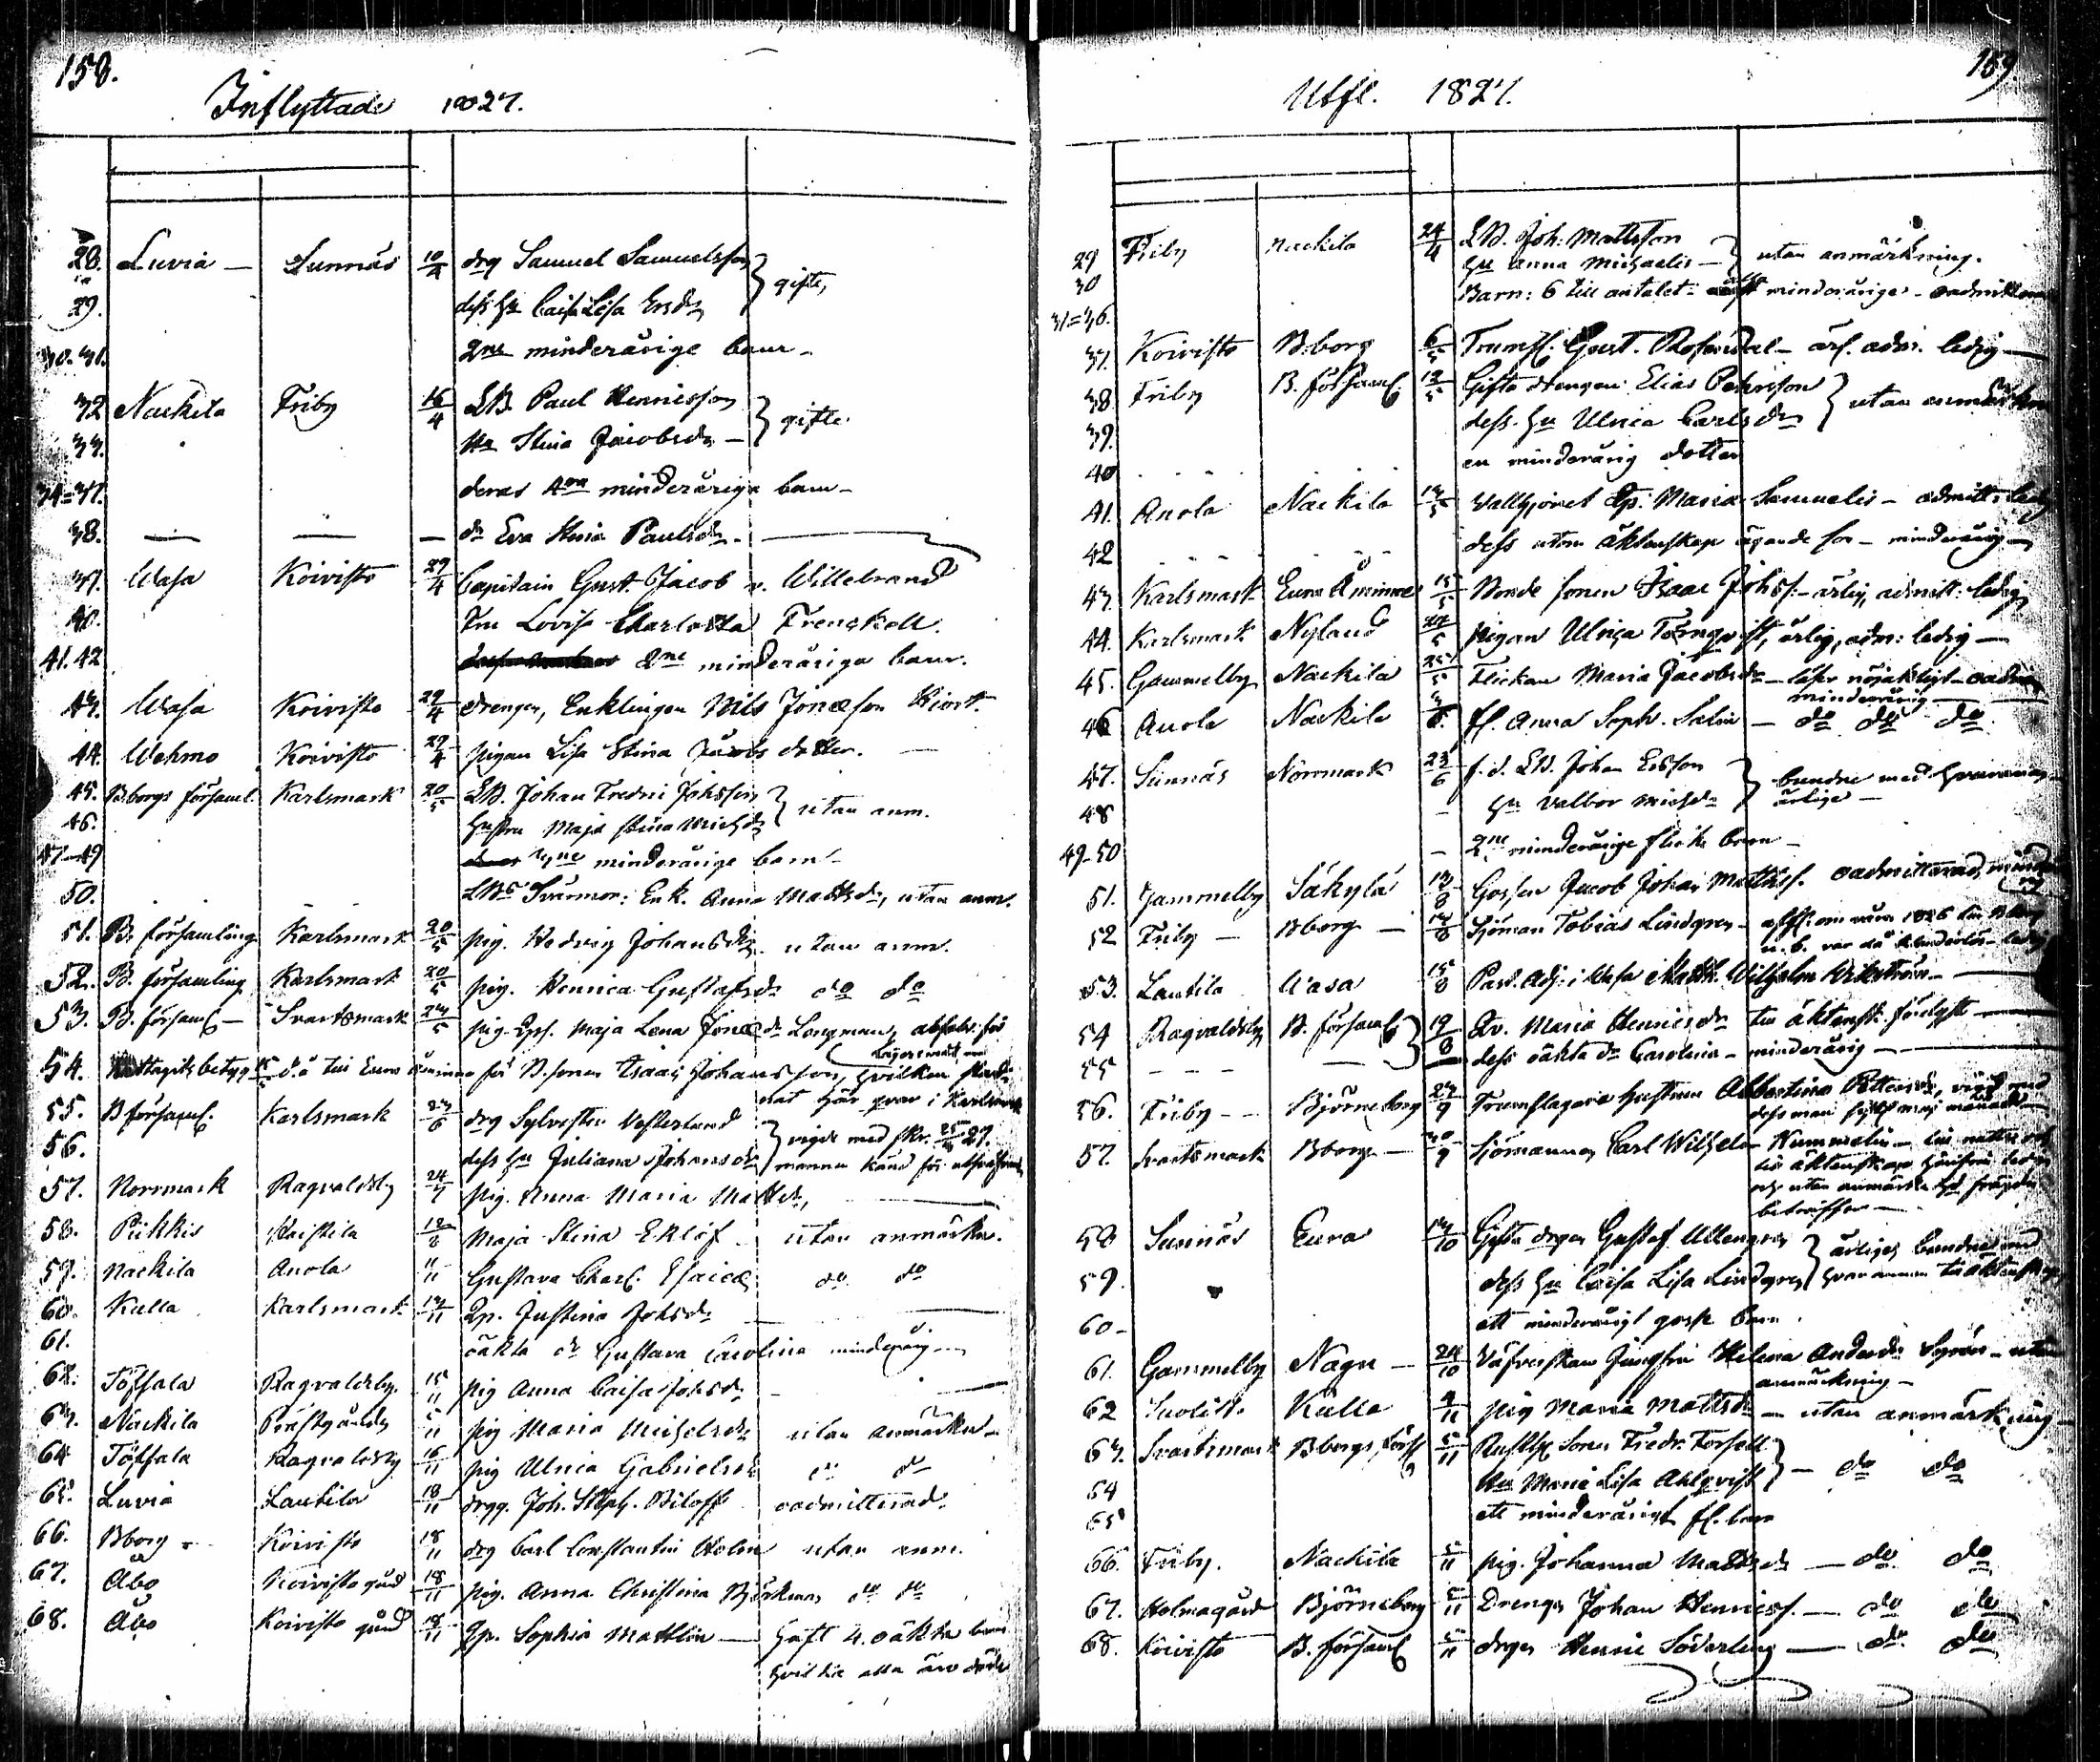 158.
Inflyttade 1827.
28. Luvia — Sunnäs 10/4 drg Samuel Samuelsson } gifte,
29. dess hu Caisa Lisa Ersdr
30. 31. 2ne minderårige barn –
32 Nackila Friby 16/4 LB. Paul Henricsson } gifte
33. Hu Stina Jacobsdr —
34=37. deras 4ra minderåriga barn –
38. — — — dr Eva Stina Paulsdr. —
39. Wasa Koivisto 29/4 Capitain Gust. Jacob v. Willebrand
40. Fru Lovisa Charlotta Frenckell.
41. 42 2ne minderåriga barn.
43. Wasa Koivisto 29/4 drengen, Enklingen Nils Jonasson
44. Wehmo Koivisto 29/4 pigan Lisa Stina Jacobs dotter. —
45. B.borgs församl. Karlsmark 20/5 LB. Johan Fredric Johsson } utan anm.
46. hustru Maja Stina Michsdr
47–49 3ne minderårige barn –
50. LBs Svärmor: Enk. Anna Mattsdr, utan anm.
51. B. församling Karlsmark 20/5 pig. Hedvig Johansdr utan anm.
52. B. församling Karlsmark 20/5 pig. Henrica Gustafsdr do do
53. B. församl — Svartsmark 24/5 pig. Qps. Maja Lena Jonaedr Longman, absolv. för
lägersmål
54. betyg d.å till Eura för B. sonen Isaac Johansson, hvilken
här qvar i Karlsmark
55. B församl. Karlsmark 23/6 drg Sylvester Vesterlund } vigde med 27.
56. dess hu Juliana Johansdr mannen känd för
57. Norrmark Ragvaldsby 24/7 pig. Anna Maria Mattsdr,
58. Pikkis 12/8 Maja Stina Eklöf – utan anmärkn.
59. Nackila Anola 11/11 Gustava Charl. Esaiae do do
60. Kulla Karlsmark 13/11 Qp. Justina Johsdr
61. oäkta dr Gustava Carolina minderårig —
62. Töfsala Ragvaldsby. 15/11 pig Anna Caisa Johsdr —
63. Nackila Prästgården 5/11 pig Maria Michelsdr utan anmärkn –
64 Töfsala Ragvaldsby 16/11 pig Ulrica Gabrielsdr do do
65. Luvia Lautila 18/11 drgg. Joh. Steph. oadmitterad.
66. Bborg Koivisto 18/11 drg Carl Constantin Holm utan anm.
67. Åbo Koivisto gård 18/11 pig. Anna Christina Björkman do do
68. Åbo Koivisto gård 18/11 Qp. Sophia Mattlin — haft 4. oäkta barn
hvilka alla äro döde
159
Utfl. 1827.
29 Friby Nackila 24/4 LB. Joh. Mattsson } utan anmärkning.
30 hu Anna Michaelis —
31=36. Barn: 6 till antalet: minderårige – oadmitterade
37. Koivisto B.borg 6/5 Trumsl. Gust. Rosendal – ärl. adm. ledig —
38 Friby B. församl. 12/5 Gifta drengen Elias Petersson } utan anmärkn
39. dess hu Ulrica Carlsdr
40 en minderårig dotter
41. Anola Nackila 13/5 Vallhjonet Qp. Maria Samuelis – admitt: ledig
42 dess utom äktenskap ägande son – minderårig —
43. Karlsmark Eura Åminne 15/5 Bonde sonen Isaac Johss. – ärlig, admitt: ledig
44. Karlsmark Nyland 22/5 pigan Ulrica Törnqvist, ärlig, adm: ledig —
45. Gammelby Nackila 25/5 Flickan Maria Jacobsdr – läser nöjaktigt – oadm
minderårig
46 Anola Nackila fl. Anna Soph. Salin — do do do
47. Sunnäs Norrmark 23/6 f.d. LB. Johan Ersson } bundne med hvarannan
48 hu Valbor Michsdr ärlige —
49–50 2ne minderårige flicke barn —
51. Gammelby Säkylä 13/8 Gossen Jacob Johan Mattss. oadmitterad,
52 Friby — Bborg — 14/8 Sjöman Tobias Lindgren – 1826
53. Lautila Wasa 15/8 Past. Adj. i Wasa Math. Wilhelm Wikström —
54 Ragvaldsby B. församl } 19/8 Qv. Maria Henricsdr till äktensk. förlofv
55 — — — dess oäkta dr Carolina – minderårig —
56. Friby – – Björneborg 27/9 Trumslagare hustrun Albertina Pettersdr,
57. Svartsmark Bborg — 30/9 Sjömannen Carl Wilhelm Nummelin –
till äktenskap
beträffar —
58 Sunnäs Eura 13/10 Gifta drgen Gustaf Ullengren } ärligen bundne med
59. dess hu Caisa Lisa Lindgren hvar annan
60– ett minderårigt gosse barn
61. Gammelby Nagu — 24/10 Väfverskan Jungfru Helena Andersdr – utan
anmärkning —
62 Kulla 4/11 pig Maria Mattsdr – utan anmärkning –
63. Svartsmark Bborgs förs 5/11 sonen Fredr. Forsell } — do do
64 Hu Maria Lisa Ahlqvist
65 ett minderårigt fl. barn
66. Friby. Nackila 5/11 pig. Johanna Mattsdr — do do
67. Holmagård Björneborg 5/11 Drengen Johan Henricss. — do do
68. Koivisto B. församl 5/11 drgen Henric Söderling — do do